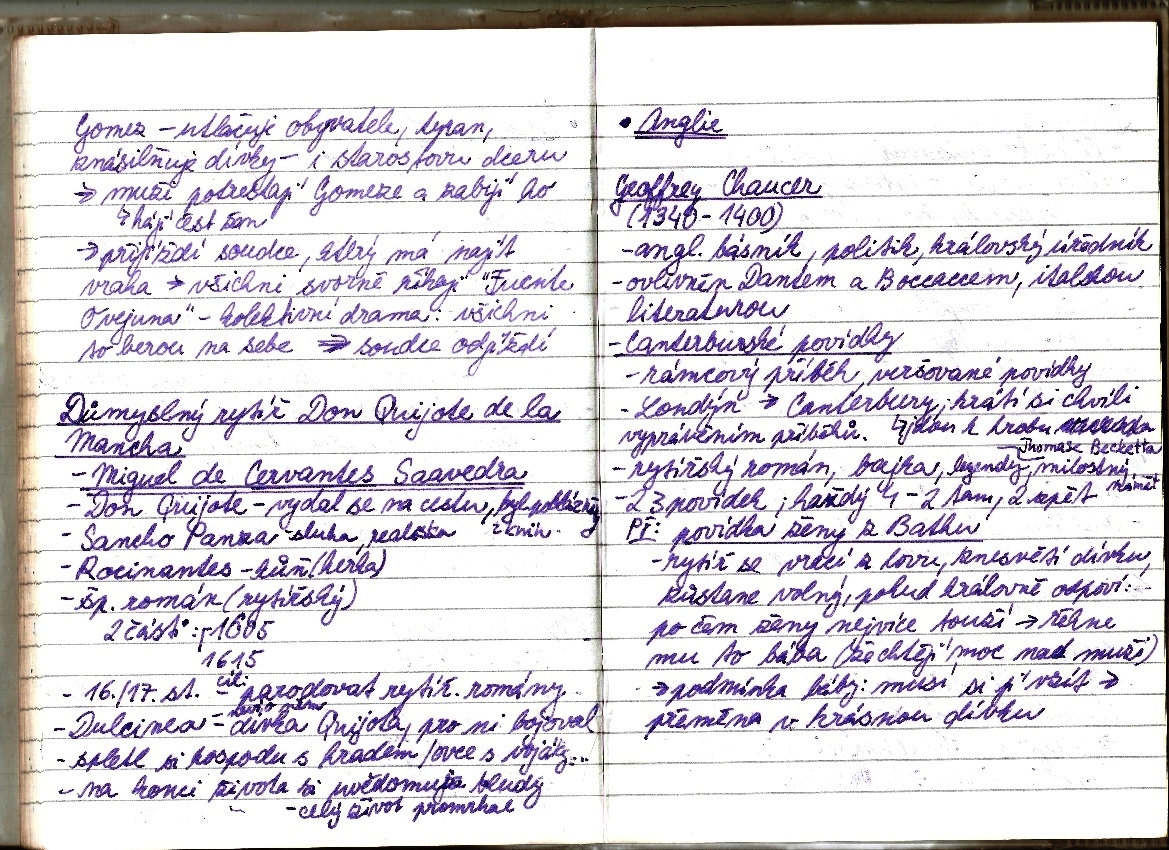 Gomez - utlačuje obyvatele, tyran,
znásilňuje dívky - i starostovu dceru
⇒ muži potrestají Gomeze a zabijí ho
↳ hájí čest žen
→ přijíždí soudce, který má najít
vraha → všichni svorně říkají "Fuente
Ovejuna" - kolektivní drama: všichni
to berou na sebe ⇒ soudce odjíždí
Důmyslný rytíř Don Quijote de la
Mancha
- Miguel de Cervantes Saavedra
- Don Quijote - vydal se na cestu, byl poblázněný
z knih
- Sancho Panza - sluha, realista
- Rocinantes - kůň (herka)
- šp. román (rytířský)
2 části: 1605
1615
- 16./17. st. - cíl: parodovat rytíř. romány
- Dulcinea - dívka Quijota, pro ni bojoval
- spletl si hospodu s hradem / ovce s vojáky...
- na konci života si uvědomuje bludy
- celý život promrhal
• Anglie
Geoffrey Chaucer
(1340 - 1400)
- angl. básník, politik, královský úředník
- ovlivněn Dantem a Boccaccem, italskou
literaturou
- Canterburské povídky
- rámcový příběh, veršované povídky
- Londýn → Canterbury; krátí si chvíli
vyprávěním příběhů. ↳ jdou k hrobu
Thomase Becketta
- rytířský román, bajka, legendy, milostný
námět
- 23 povídek; každý 1-2 tam, 2 zpět
Př: povídka ženy z Bathu
- rytíř se vrací z lovu, zneuctí dívku,
zůstane volný, pokud královně odpoví:
po čem ženy nejvíce touží → řekne
mu to bába (že chtějí moc nad muži)
→ podmínka báby: musí si ji vzít →
přeměna v krásnou dívku